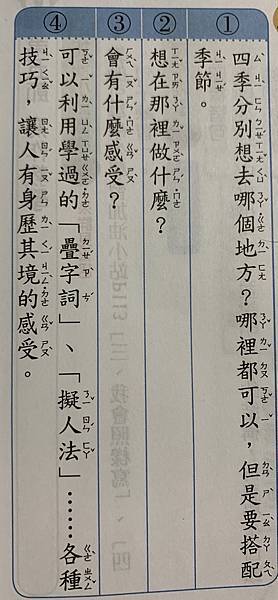 ①
四季分別想去哪個地方？哪裡都可以，但是要搭配
季節。
②
想在那裡做什麼？
③
會有什麼感受？
④
可以利用學過的「疊字詞」、「擬人法」⋯⋯各種
技巧，讓人有身歷其境的感受。